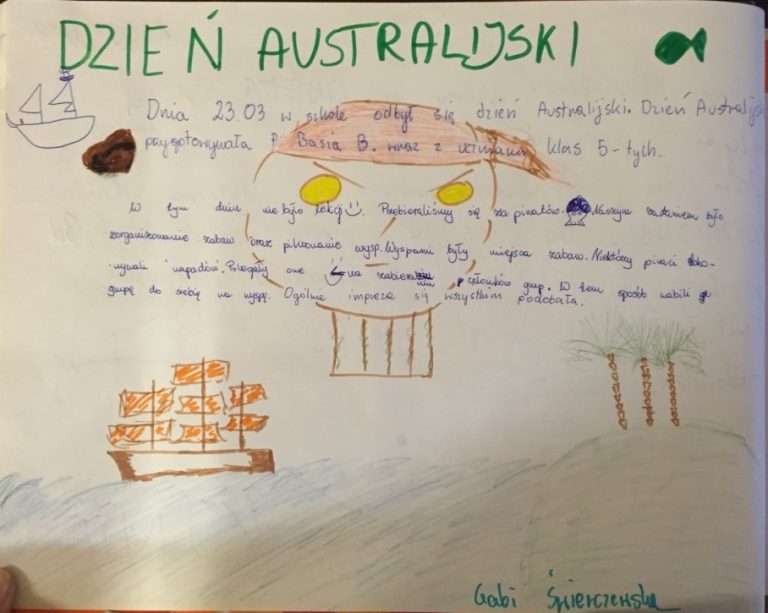 DZIEŃ AUSTRALIJSKI
Dnia 23.03 w szkole odbył się dzień Australijski. Dzień Australijski
przygotowywała P. Basia B. wraz z uczniami klas 5-tych.
W tym dniu nie było lekcji Przebieraliśmy się za piratów. Naszym zadaniem było
zorganizowanie zabaw oraz pilnowanie wysp. Wyspami były miejsca zabaw. Niektórzy piraci doko-
nywali napadów. Polegały one na zabieraniu członków grup. W ten sposób wabili
grupę do siebie na wyspę. Ogólnie impreza się wszystkim podobała.
Gabi Świerczewska